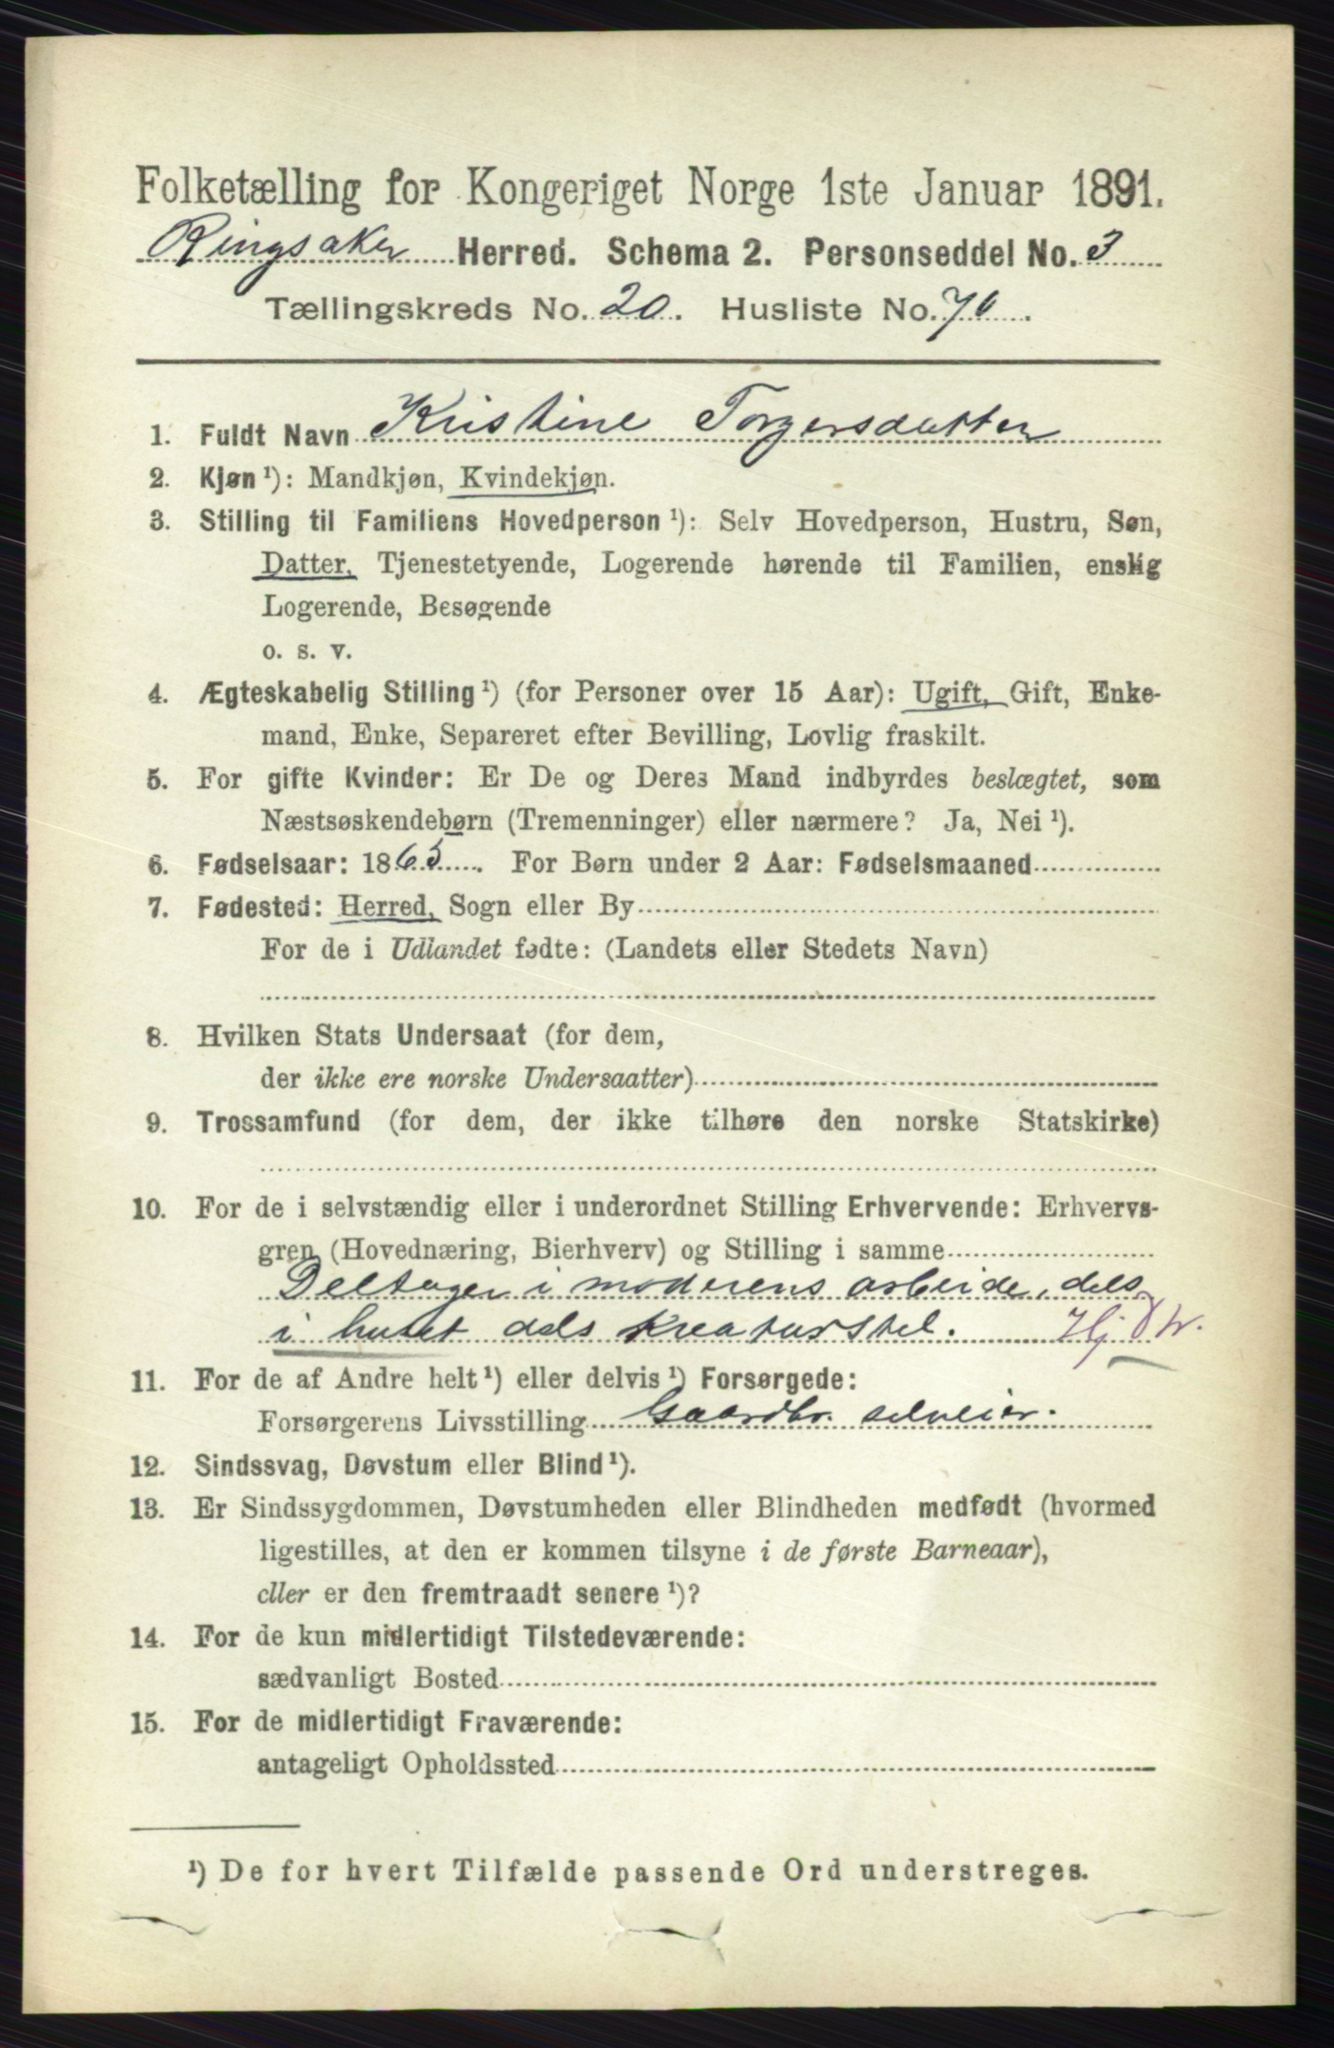 Folketælling for Kongeriget Norge 1ste Januar 1891.
Ringsaker Herred. Schema 2. Personseddel No. 3
Tællingskreds No. 20. Husliste No. 76.
1. Fuldt Navn Kristine Torgersdatter
2. Kjøn ¹): Mandkjøn, Kvindekjøn.
3. Stilling til Familiens Hovedperson ¹): Selv Hovedperson, Hustru, Søn,
Datter, Tjenestetyende, Logerende hørende til Familien, enslig
Logerende, Besøgende
o. s. v.
4. Ægteskabelig Stilling ¹) (for Personer over 15 Aar): Ugift, Gift, Enke-
mand, Enke, Separeret efter Bevilling, Lovlig fraskilt.
5. For gifte Kvinder: Er De og Deres Mand indbyrdes beslægtet, som
Næstsøskendebørn (Tremenninger) eller nærmere? Ja, Nei ¹).
6. Fødselsaar: 1865. For Børn under 2 Aar: Fødselsmaaned
7. Fødested: Herred, Sogn eller By
For de i Udlandet fødte: (Landets eller Stedets Navn)
8. Hvilken Stats Undersaat (for dem,
der ikke ere norske Undersaatter)
9. Trossamfund (for dem, der ikke tilhøre den norske Statskirke)
10. For de i selvstændig eller i underordnet Stilling Erhvervende: Erhvervs-
gren (Hovednæring, Bierhverv) og Stilling i samme
Deltager i moderens arbeide, dels
i huset dels kreaturstel.
11. For de af Andre helt ¹) eller delvis ¹) Forsørgede:
Forsørgerens Livsstilling Gaardbr. selveier.
12. Sindssvag, Døvstum eller Blind ¹).
13. Er Sindssygdommen, Døvstumheden eller Blindheden medfødt (hvormed
ligestilles, at den er kommen tilsyne i de første Barneaar),
eller er den fremtraadt senere ¹)?
14. For de kun midlertidigt Tilstedeværende:
sædvanligt Bosted
15. For de midlertidigt Fraværende:
antageligt Opholdssted
¹) De for hvert Tilfælde passende Ord understreges.